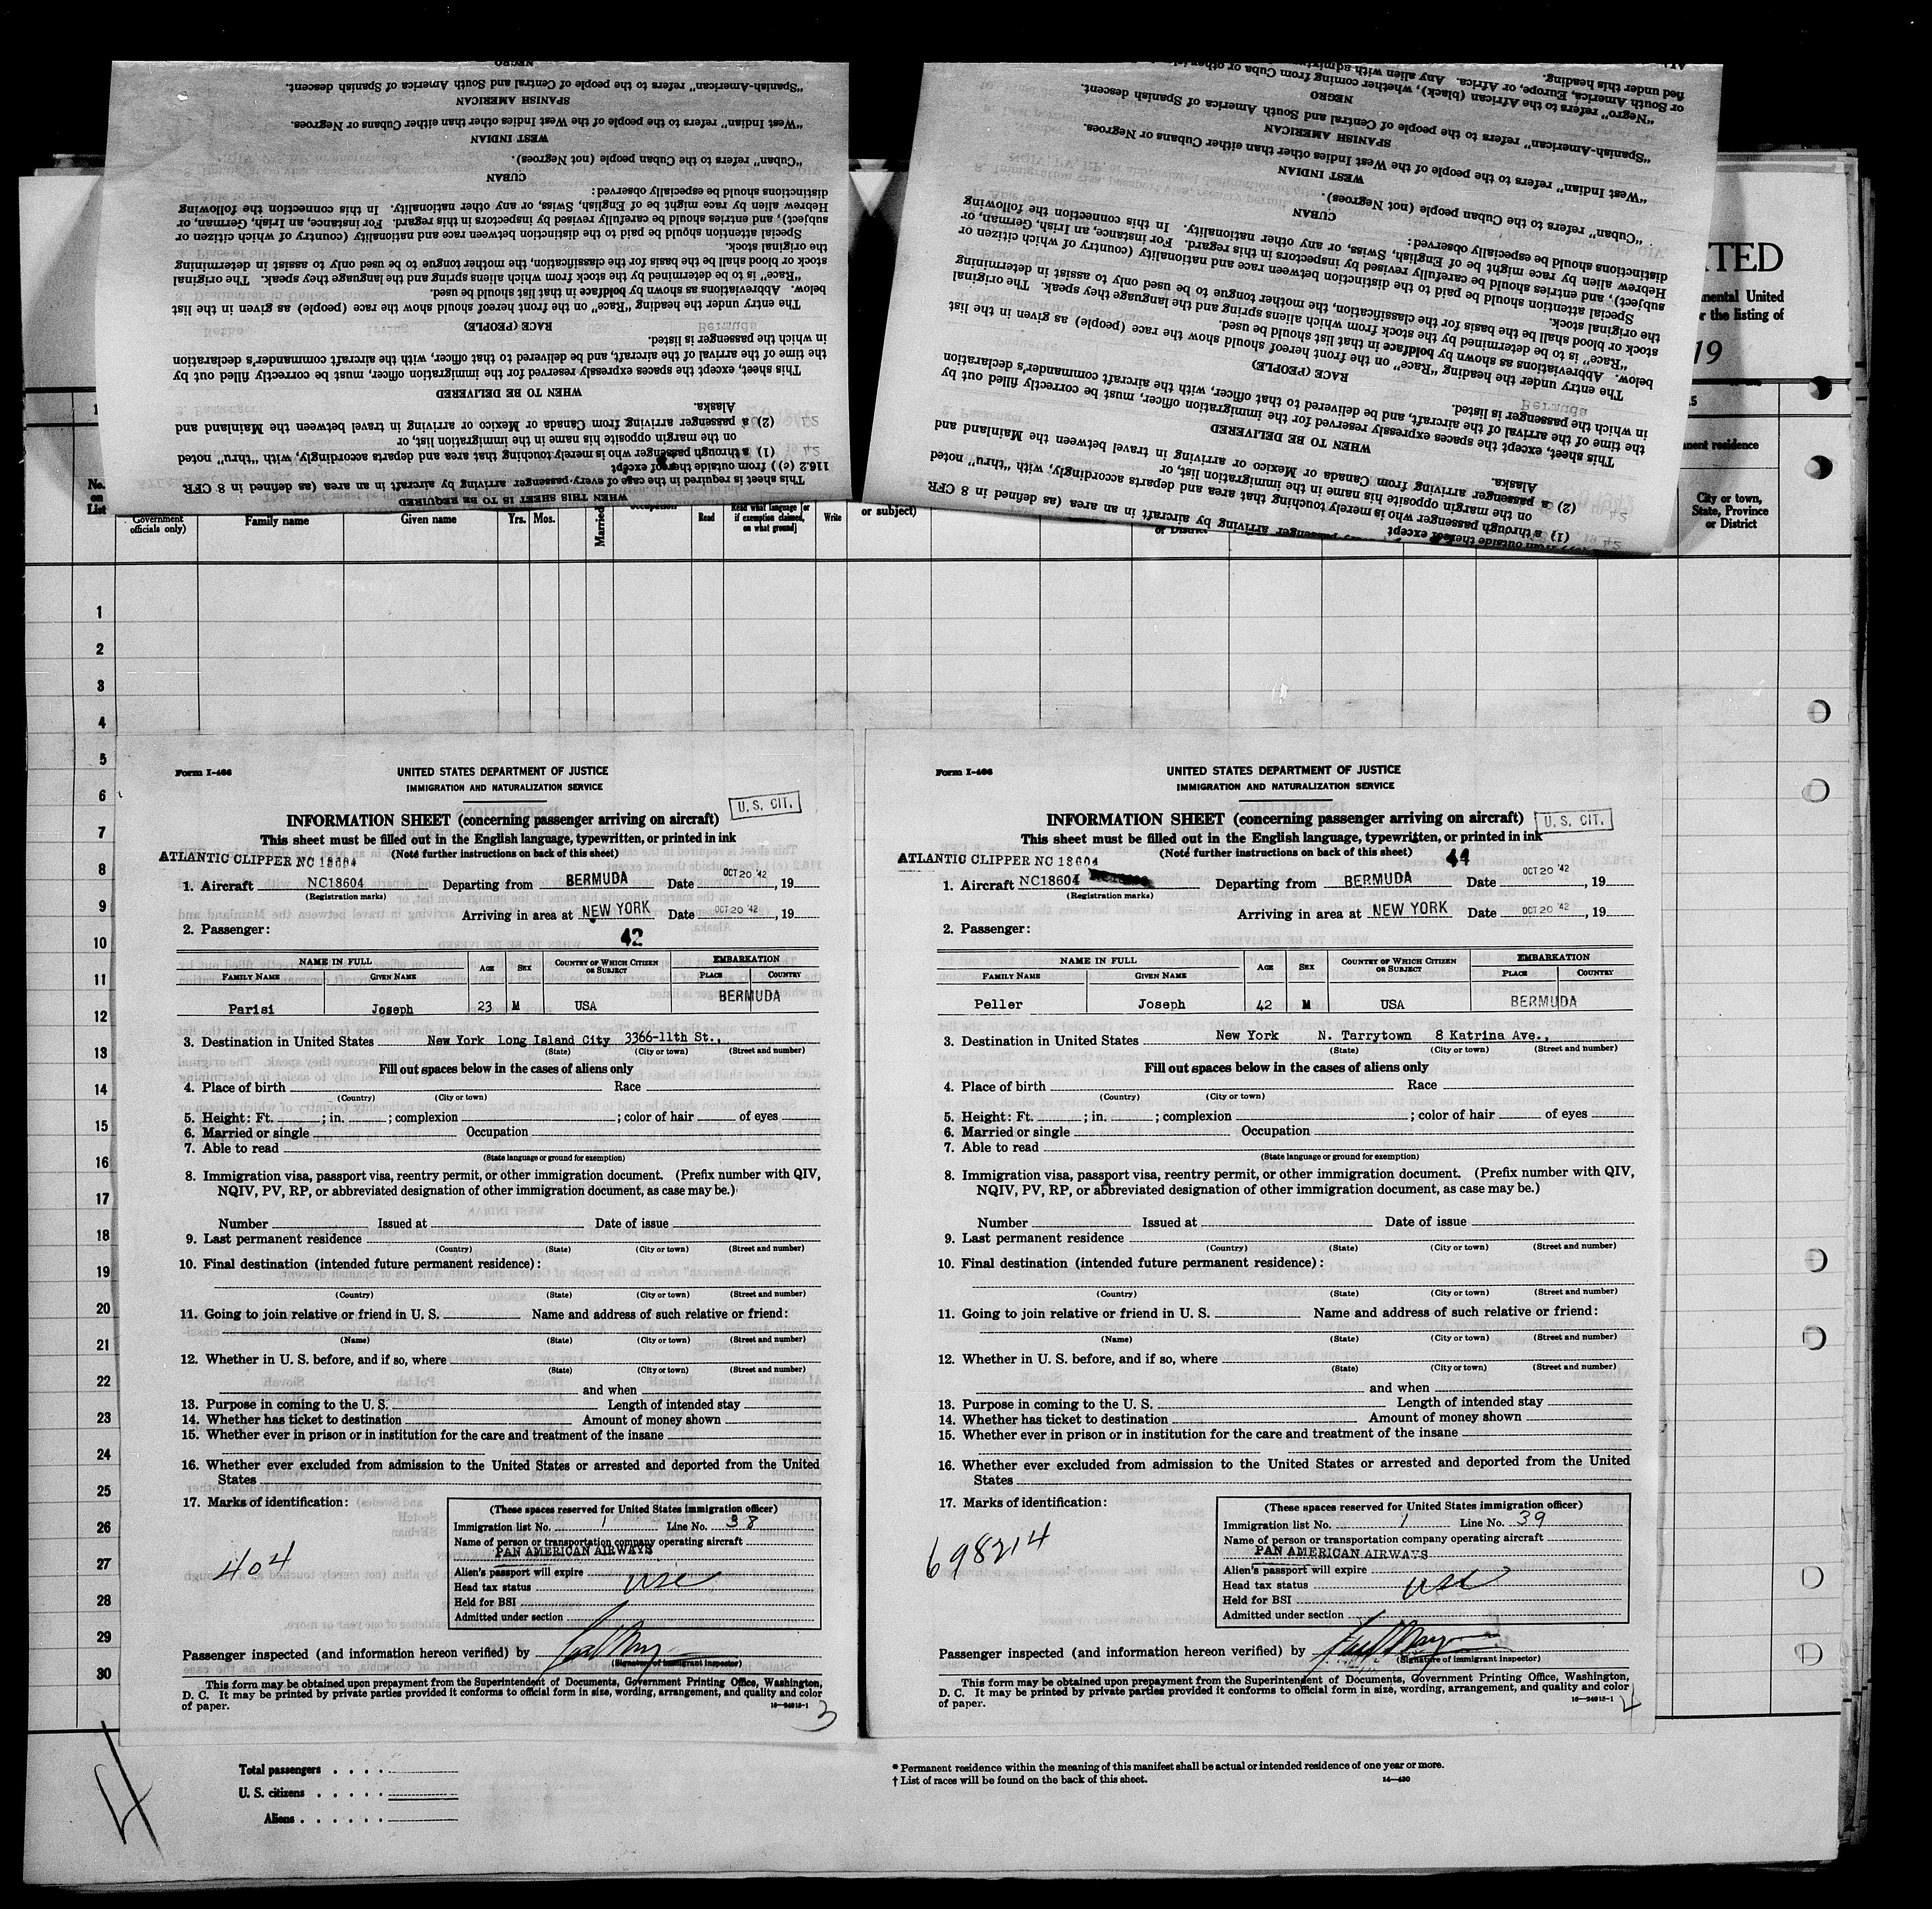 NEGRO
"Spanish-American" refers to the people of Central and South America of Spanish descent.
SPANISH AMERICAN
"West Indian" refers to the people of the West Indies other than either Cubans or Negroes.
WEST INDIAN
"Cuban" refers to the Cuban people (not Negroes).
CUBAN
distinctions should be especially observed:
Hebrew alien by race might be of English, Swiss, or any other nationality. In this connection the following
subject), and entries should be carefully revised by inspectors in this regard. For instance, an Irish, German, or
Special attention should be paid to the distinction between race and nationality (country of which citizen or
the original stock.
stock or blood shall be the basis for the classification, the mother tongue to be used only to assist in determining
"Race" is to be determined by the stock from which aliens spring and the language they speak. The original
below. Abbreviations as shown by boldface in that list should be used.
The entry under the heading "Race" on the front hereof should show the race (people) as given in the list
RACE (PEOPLE)
in which the passenger is listed.
the time of the arrival of the aircraft, and be delivered to that officer, with the aircraft commander's declaration
This sheet, except the spaces expressly reserved for the immigration officer, must be correctly filled out by
WHEN TO BE DELIVERED
Alaska.
(2) a passenger arriving from Canada or Mexico or arriving in travel between the Mainland and
on the margin opposite his name in the immigration list, or
(1) a through passenger who is merely touching that area and departs accordingly, with "thru" noted
116.2 (c)) from outside thereof except
This sheet is required in the case of every passenger arriving by aircraft in an area (as defined in 8 CFR
WHEN THIS SHEET IS TO BE REQUIRED
fied under this heading.
or South America, Europe, or Africa. Any alien with
"Negro" refers to the African (black), whether coming from Cuba or other
NEGRO
"Spanish-American" refers to the people of Central and South America of Spanish descent.
SPANISH AMERICAN
"West Indian" refers to the people of the West Indies other than either Cubans or Negroes.
WEST INDIAN
"Cuban" refers to the Cuban people (not Negroes).
CUBAN
distinctions should be especially observed:
Hebrew alien by race might be of English, Swiss, or any other nationality. In this connection the following
subject), and entries should be carefully revised by inspectors in this regard. For instance, an Irish, German, or
Special attention should be paid to the distinction between race and nationality (country of which citizen or
the original stock.
stock or blood shall be the basis for the classification, the mother tongue to be used only to assist in determining
"Race" is to be determined by the stock from which aliens spring and the language they speak. The original
below. Abbreviations as shown by boldface in that list should be used.
The entry under the heading "Race" on the front hereof should show the race (people) as given in the list
RACE (PEOPLE)
in which the passenger is listed.
the time of the arrival of the aircraft, and be delivered to that officer, with the aircraft commander's declaration
This sheet, except the spaces expressly reserved for the immigration officer, must be correctly filled out by
WHEN TO BE DELIVERED
Alaska.
(2) a passenger arriving from Canada or Mexico or arriving in travel between the Mainland and
on the margin opposite his name in the immigration list, or
(1) a through passenger who is merely touching that area and departs accordingly, with "thru" noted
from outside thereof except
passenger arriving by aircraft in an area (as defined in 8 CFR
TED
mental United
r the listing of
19
15
nent residence
City or town,
State, Province
or District
No.
on
List
Government
officials only)
Family name
Given name
Yrs. Mos.
Married
Read
Read what language [or
if exemption claimed,
on what ground]
Write
or subject)
or District
1
2
3
4
5
6
7
8
9
10
11
12
13
14
15
16
17
18
19
20
21
22
23
24
25
26
27
28
29
30
Form I-466
UNITED STATES DEPARTMENT OF JUSTICE
IMMIGRATION AND NATURALIZATION SERVICE
U. S. CIT.
INFORMATION SHEET (concerning passenger arriving on aircraft)
This sheet must be filled out in the English language, typewritten, or printed in ink
(Note further instructions on back of this sheet)
ATLANTIC CLIPPER NC 18604
1. Aircraft NC18604 Departing from BERMUDA Date OCT 20 '42, 19
(Registration marks)
Arriving in area at NEW YORK Date OCT 20 '42, 19
2. Passenger:
42
NAME IN FULL AGE SEX COUNTRY OF WHICH CITIZEN OR SUBJECT EMBARKATION
FAMILY NAME GIVEN NAME PLACE COUNTRY
Parisi Joseph 23 M USA BERMUDA
3. Destination in United States New York Long Island City 3366-11th St.,
(State) (City or town) (Street and number)
Fill out spaces below in the cases of aliens only
4. Place of birth Race
(Country) (City or town)
5. Height: Ft. ; in. ; complexion ; color of hair of eyes
6. Married or single Occupation
7. Able to read
(State language or ground for exemption)
8. Immigration visa, passport visa, reentry permit, or other immigration document. (Prefix number with QIV,
NQIV, PV, RP, or abbreviated designation of other immigration document, as case may be.)
Number Issued at Date of issue
9. Last permanent residence
(Country) (State) (City or town) (Street and number)
10. Final destination (intended future permanent residence):
(Country) (State) (City or town) (Street and number)
11. Going to join relative or friend in U. S. Name and address of such relative or friend:
(Name) (State) (City or town) (Street and number)
12. Whether in U. S. before, and if so, where
(State) (City or town) (Street and number)
and when
13. Purpose in coming to the U. S. Length of intended stay
14. Whether has ticket to destination Amount of money shown
15. Whether ever in prison or in institution for the care and treatment of the insane
16. Whether ever excluded from admission to the United States or arrested and deported from the United
States
17. Marks of identification:
404
(These spaces reserved for United States immigration officer)
Immigration list No. 1 Line No. 38
Name of person or transportation company operating aircraft
PAN AMERICAN AIRWAYS
Alien's passport will expire
Head tax status USC
Held for BSI
Admitted under section
Passenger inspected (and information hereon verified) by
(Signature of immigrant inspector)
This form may be obtained upon prepayment from the Superintendent of Documents, Government Printing Office, Washington,
D. C. It may be printed by private parties provided it conforms to official form in size, wording, arrangement, and quality and color
of paper.
16—24915-1
3
Form I-466
UNITED STATES DEPARTMENT OF JUSTICE
IMMIGRATION AND NATURALIZATION SERVICE
INFORMATION SHEET (concerning passenger arriving on aircraft)
U. S. CIT.
This sheet must be filled out in the English language, typewritten, or printed in ink
(Note further instructions on back of this sheet)
44
ATLANTIC CLIPPER NC 18604
1. Aircraft NC18604 Departing from BERMUDA Date OCT 20 '42, 19
(Registration marks)
Arriving in area at NEW YORK Date OCT 20 '42, 19
2. Passenger:
NAME IN FULL AGE SEX COUNTRY OF WHICH CITIZEN OR SUBJECT EMBARKATION
FAMILY NAME GIVEN NAME PLACE COUNTRY
Peller Joseph 42 M USA BERMUDA
3. Destination in United States New York N. Tarrytown 8 Katrina Ave.,
(State) (City or town) (Street and number)
Fill out spaces below in the cases of aliens only
4. Place of birth Race
(Country) (City or town)
5. Height: Ft. ; in. ; complexion ; color of hair of eyes
6. Married or single Occupation
7. Able to read
(State language or ground for exemption)
8. Immigration visa, passport visa, reentry permit, or other immigration document. (Prefix number with QIV,
NQIV, PV, RP, or abbreviated designation of other immigration document, as case may be.)
Number Issued at Date of issue
9. Last permanent residence
(Country) (State) (City or town) (Street and number)
10. Final destination (intended future permanent residence):
(Country) (State) (City or town) (Street and number)
11. Going to join relative or friend in U. S. Name and address of such relative or friend:
(Name) (State) (City or town) (Street and number)
12. Whether in U. S. before, and if so, where
(State) (City or town) (Street and number)
and when
13. Purpose in coming to the U. S. Length of intended stay
14. Whether has ticket to destination Amount of money shown
15. Whether ever in prison or in institution for the care and treatment of the insane
16. Whether ever excluded from admission to the United States or arrested and deported from the United
States
17. Marks of identification:
698214
(These spaces reserved for United States immigration officer)
Immigration list No. 1 Line No. 39
Name of person or transportation company operating aircraft
PAN AMERICAN AIRWAYS
Alien's passport will expire
Head tax status USC
Held for BSI
Admitted under section
Passenger inspected (and information hereon verified) by
(Signature of immigrant inspector)
This form may be obtained upon prepayment from the Superintendent of Documents, Government Printing Office, Washington,
D. C. It may be printed by private parties provided it conforms to official form in size, wording, arrangement, and quality and color
of paper.
16—24915-1
4
4
Total passengers
U. S. citizens
Aliens
* Permanent residence within the meaning of this manifest shall be actual or intended residence of one year or more.
† List of races will be found on the back of this sheet.
14—430